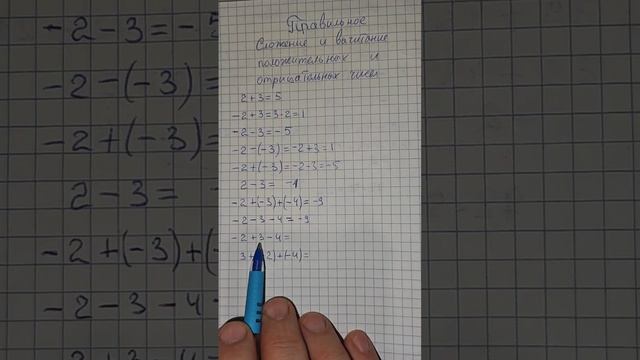 Правильное
Сложение и вычитание
положительных и
отрицательных чисел
2+3=5
-2+3=3-2=1
-2-3=-5
-2-(-3)=-2+3=1
-2+(-3)=-2-3=-5
2-3= -1
-2+(-3)+(-4)=-9
-2-3-4=-9
-2+3-4=
3+(-2)+(-4)=